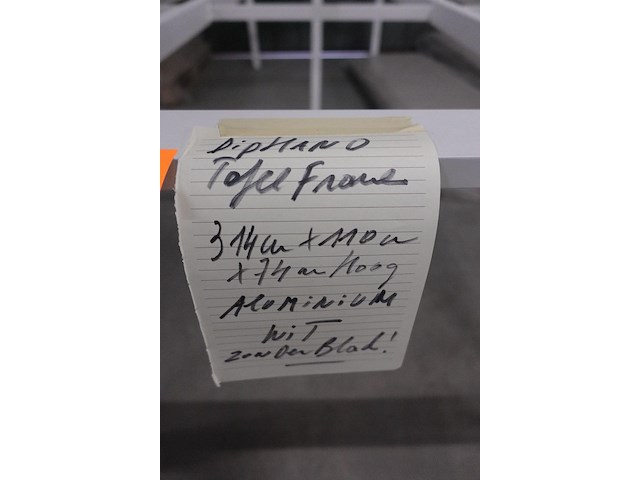 DiPHANO
Tafel Frame
314cm x 110cm
x 74cm Hoog
ALUMINIUM
WiT
zonDer Blad!